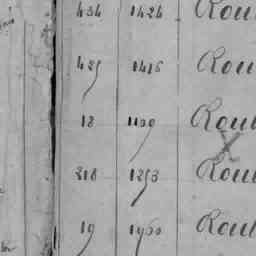 434 1424 Rou
425 1416 Rou
12 1109 Rou
218 1253 Rou
19 1960 Rou